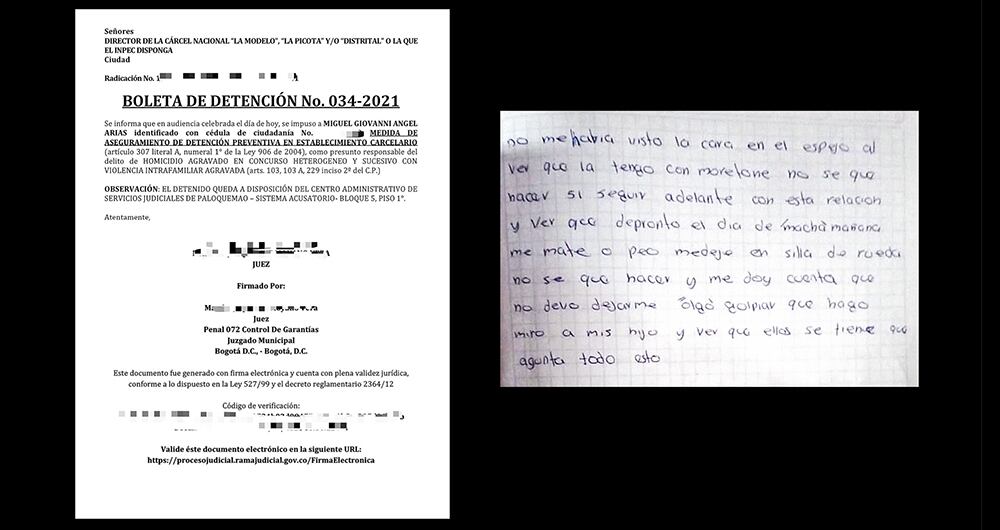 Señores
DIRECTOR DE LA CÁRCEL NACIONAL "LA MODELO", "LA PICOTA" Y/O "DISTRITAL" O LA QUE
EL INPEC DISPONGA
Ciudad
Radicación No. 1
BOLETA DE DETENCIÓN No. 034-2021
Se informa que en audiencia celebrada el día de hoy, se impuso a MIGUEL GIOVANNI ANGEL
ARIAS identificado con cédula de ciudadanía No. MEDIDA DE
ASEGURAMIENTO DE DETENCIÓN PREVENTIVA EN ESTABLECIMIENTO CARCELARIO
(artículo 307 literal A, numeral 1° de la Ley 906 de 2004), como presunto responsable del
delito de HOMICIDIO AGRAVADO EN CONCURSO HETEROGENEO Y SUCESIVO CON
VIOLENCIA INTRAFAMILIAR AGRAVADA (arts. 103, 103 A, 229 inciso 2º del C.P.)
OBSERVACIÓN: EL DETENIDO QUEDA A DISPOSICIÓN DEL CENTRO ADMINISTRATIVO DE
SERVICIOS JUDICIALES DE PALOQUEMAO – SISTEMA ACUSATORIO- BLOQUE 5, PISO 1°.
Atentamente,
JUEZ
Firmado Por:
Juez
Penal 072 Control De Garantías
Juzgado Municipal
Bogotá D.C., - Bogotá, D.C.
Este documento fue generado con firma electrónica y cuenta con plena validez jurídica,
conforme a lo dispuesto en la Ley 527/99 y el decreto reglamentario 2364/12
Código de verificación:
Valide éste documento electrónico en la siguiente URL:
https://procesojudicial.ramajudicial.gov.co/FirmaElectronica
no me habia visto la cara en el espejo al
ver que la tengo con moretone no se que
hacer si seguir adelante con esta relacion
y ver que depronto el dia de macha mañana
me mate o peo medeje en silla de rueda
no se que hacer y me doy cuenta que
no devo dejarme golpiar que hago
miro a mis hijo y ver que ellos se tiene que
agunta todo esto